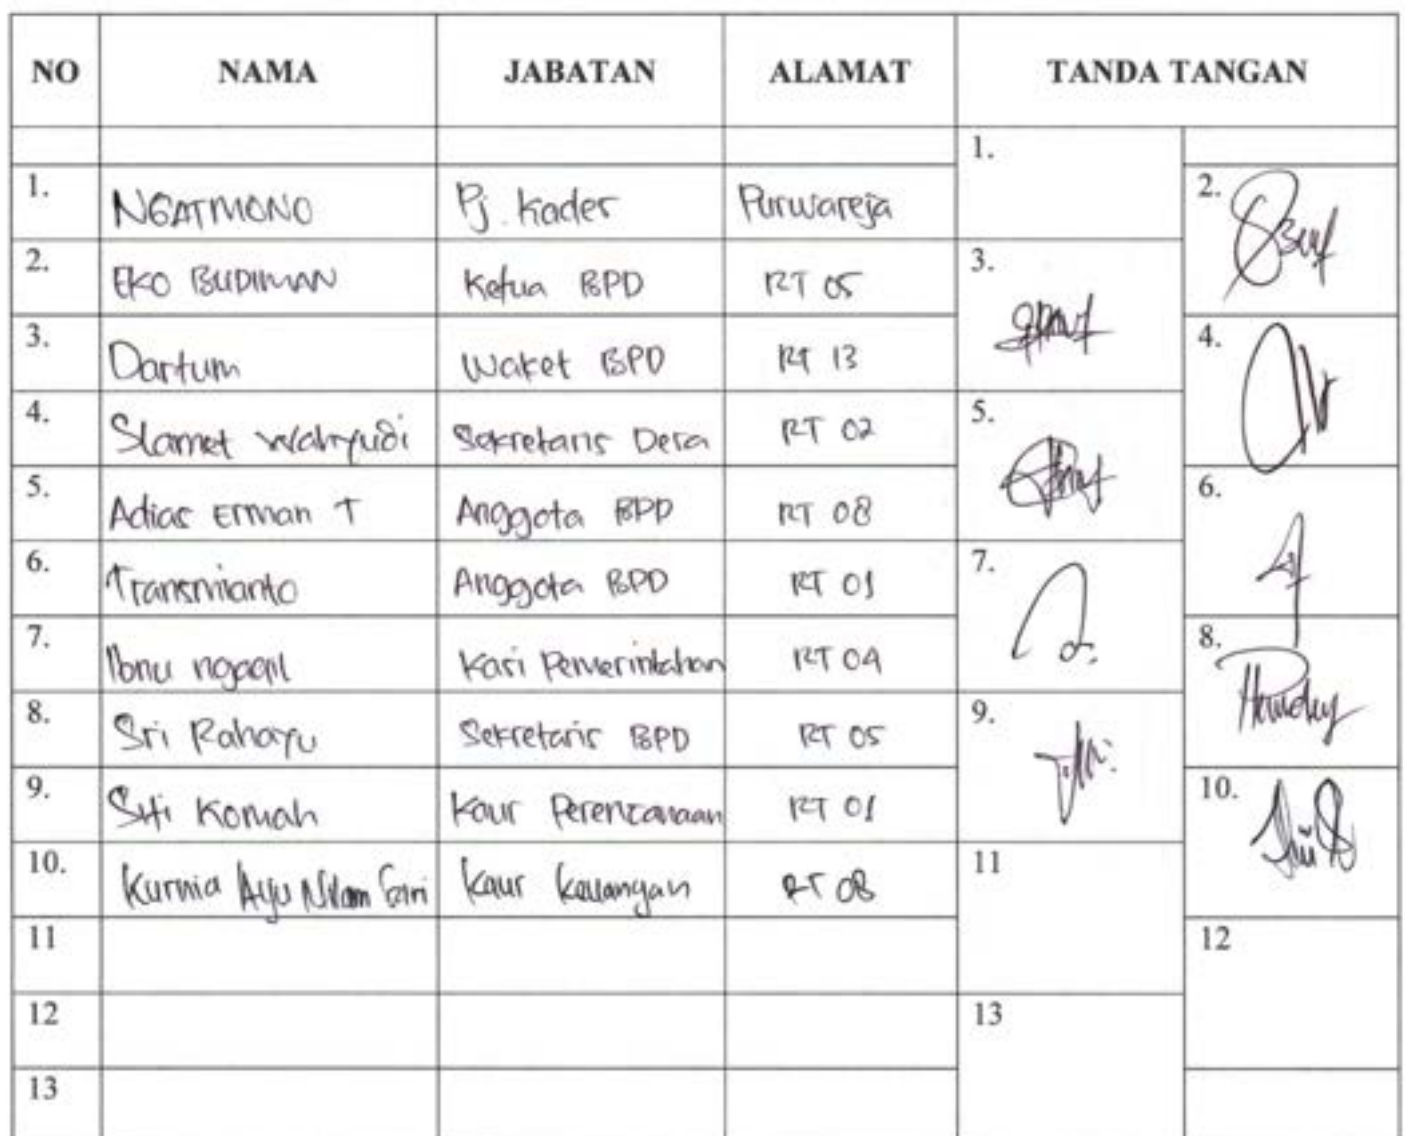 NO NAMA JABATAN ALAMAT TANDA TANGAN
1.
1. NGATMONO Pj. Kades Purwareja 2.
2. EKO BUDIMAN Ketua BPD RT 05 3.
3. Dartum Waket BPD RT 13 4.
4. Slamet Wahyudi Sekretaris Desa RT 02 5.
5. Adias Erman T Anggota BPD RT 08 6.
6. Transmianto Anggota BPD RT 01 7.
7. Ibnu Kasi Pemerintahan RT 04 8.
8. Sri Rahayu Sekretaris BPD RT 05 9.
9. Siti Komah Kaur Perencanaan RT 01 10.
10. Kurnia Ayu Nilam Sari Kaur Keuangan RT 08 11
11 12
12 13
13